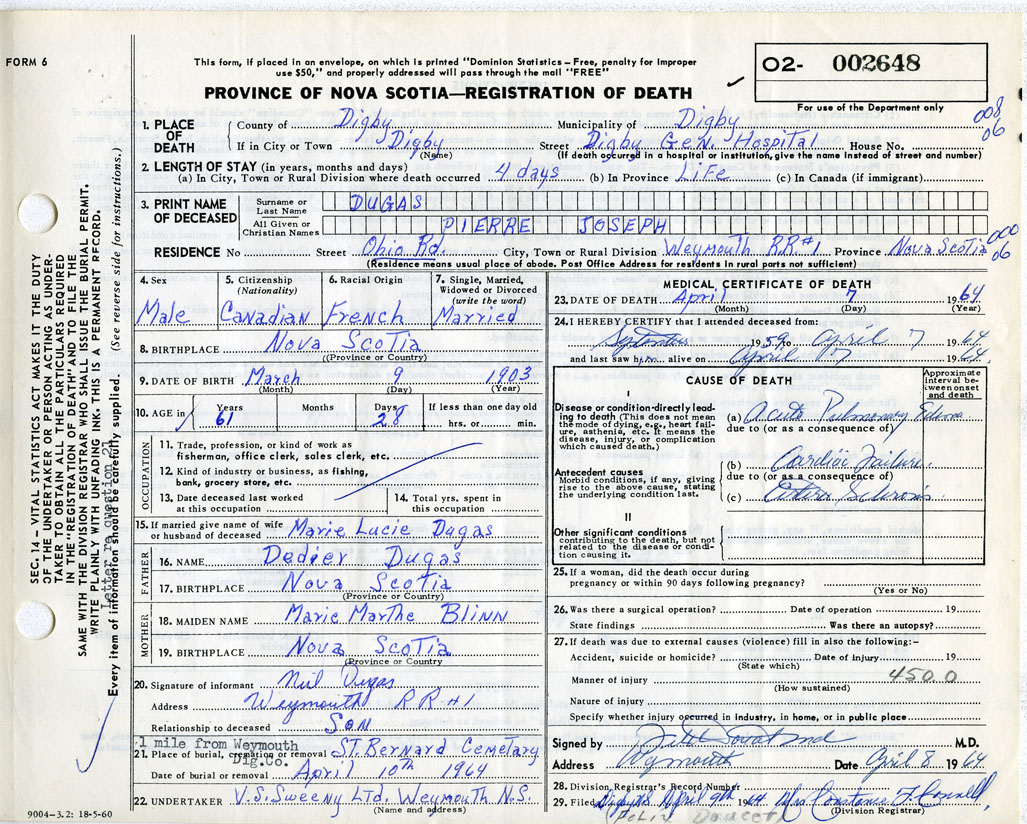 FORM 6
This form, if placed in an envelope, on which is printed "Dominion Statistics – Free, penalty for improper
use $50," and properly addressed will pass through the mail "FREE"
O2- 002648
PROVINCE OF NOVA SCOTIA—REGISTRATION OF DEATH
For use of the Department only
008
06
1. PLACE OF DEATH
County of Digby Municipality of Digby
If in City or Town Digby Street Digby Gen. Hospital House No.
(Name) (If death occurred in a hospital or institution, give the name instead of street and number)
2. LENGTH OF STAY (in years, months and days)
(a) In City, Town or Rural Division where death occurred 4 days (b) In Province LiFe (c) In Canada (if immigrant)
3. PRINT NAME OF DECEASED
Surname or Last Name DUGAS
All Given or Christian Names PIERRE JOSEPH
RESIDENCE No Street Ohio Rd. City, Town or Rural Division Weymouth RR#1 Province Nova Scotia
000
06
(Residence means usual place of abode. Post Office Address for residents in rural parts not sufficient)
4. Sex Male
5. Citizenship (Nationality) Canadian
6. Racial Origin French
7. Single, Married, Widowed or Divorced (write the word) Married
8. BIRTHPLACE Nova Scotia
(Province or Country)
9. DATE OF BIRTH March 9 1903
(Month) (Day) (Year)
10. AGE in Years 61 Months Days 28 If less than one day old hrs. or min.
OCCUPATION
11. Trade, profession, or kind of work as
fisherman, office clerk, sales clerk, etc.
12. Kind of industry or business, as fishing,
bank, grocery store, etc.
13. Date deceased last worked
at this occupation
14. Total yrs. spent in
this occupation
15. If married give name of wife
or husband of deceased Marie Lucie Dugas
FATHER
16. NAME Dedier Dugas
17. BIRTHPLACE Nova Scotia
(Province or Country)
MOTHER
18. MAIDEN NAME Marie Marthe Blinn
19. BIRTHPLACE Nova Scotia
(Province or Country
20. Signature of informant Dugas
Address Weymouth RR #1
Relationship to deceased Son
1 mile from Weymouth
Dig.Co.
21. Place of burial, cremation or removal ST. Bernard Cemetary
Date of burial or removal April 10th 1964
22. UNDERTAKER V.S. Sweeny LTd. Weymouth N.S.
(Name and address)
9004-3.2: 18-5-60
MEDICAL CERTIFICATE OF DEATH
23. DATE OF DEATH April 7 1964
(Month) (Day) (Year)
24. I HEREBY CERTIFY that I attended deceased from:
September 1959 to April 7 1964
and last saw him alive on April 7 1964
CAUSE OF DEATH
Approximate interval between onset and death
I
Disease or condition directly leading to death (This does not mean
the mode of dying, e.g., heart failure, asthenia, etc. It means the
disease, injury, or complication
which caused death.)
(a) Acute Pulmonary Edema
due to (or as a consequence of)
Antecedent causes
Morbid conditions, if any, giving
rise to the above cause, stating
the underlying condition last.
(b) Cardiac Failure
due to (or as a consequence of)
(c) Arterio Sclerosis
II
Other significant conditions
contributing to the death, but not
related to the disease or condition causing it.
25. If a woman, did the death occur during
pregnancy or within 90 days following pregnancy?
(Yes or No)
26. Was there a surgical operation? Date of operation 19
State findings Was there an autopsy?
27. If death was due to external causes (violence) fill in also the following:-
Accident, suicide or homicide? Date of injury 19
(State which)
450.0
Manner of injury
(How sustained)
Nature of injury
Specify whether injury occurred in industry, in home, or in public place
Signed by M.D.
Address Weymouth Date April 8 1964
28. Division Registrar's Record Number
29. Filed April 9th 1964 Mrs Constance
(Division Registrar)
SEC. 14 – VITAL STATISTICS ACT MAKES IT THE DUTY
OF THE UNDERTAKER OR PERSON ACTING AS UNDERTAKER TO OBTAIN ALL THE PARTICULARS REQUIRED
IN THE "REGISTRATION OF DEATH" AND TO FILE THE
SAME WITH THE DIVISION REGISTRAR WHO SHALL ISSUE THE BURIAL PERMIT.
WRITE PLAINLY WITH UNFADING INK. THIS IS A PERMANENT RECORD.
letter re question 21
Every item of information should be carefully supplied. (See reverse side for instructions.)